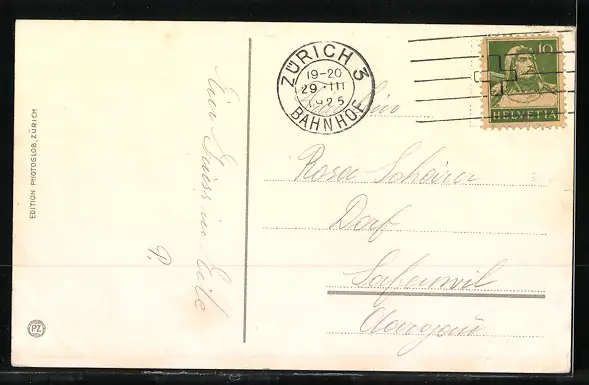 EDITION PHOTOGLOB, ZÜRICH
PZ
Einen Gruss in Eile
P.
ZÜRICH 3
19-20
29·III
1925
BAHNHOF
10
HELVETIA
Rosa Schärer
Dorf
Safenwil
Aargau